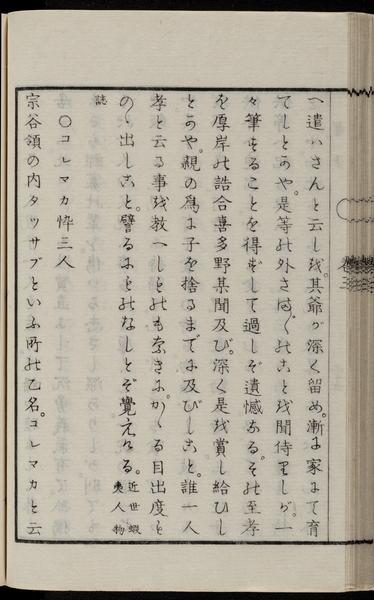 へ遣ハさんと云し残其爺が深く留め。漸に家にて育
てしとなや。是等の外さま〲のこと残聞侍りしが一
々筆することを得ずして過しぞ遺憾ある。その至孝
を厚岸の詰合喜多野某聞及び。深く是残賞し給ひし
とかや。親の為に子を捨るまでに及びしこと。誰一人
孝と云る事残教へしものも奈きに。かゝる目出度も
のゝ出しこと。譬るにものなしとぞ覚えける。近世蝦夷人物
誌
○コレマカ悴三人
宗谷領の内タツサブといふ所の乙名。コレマカと云